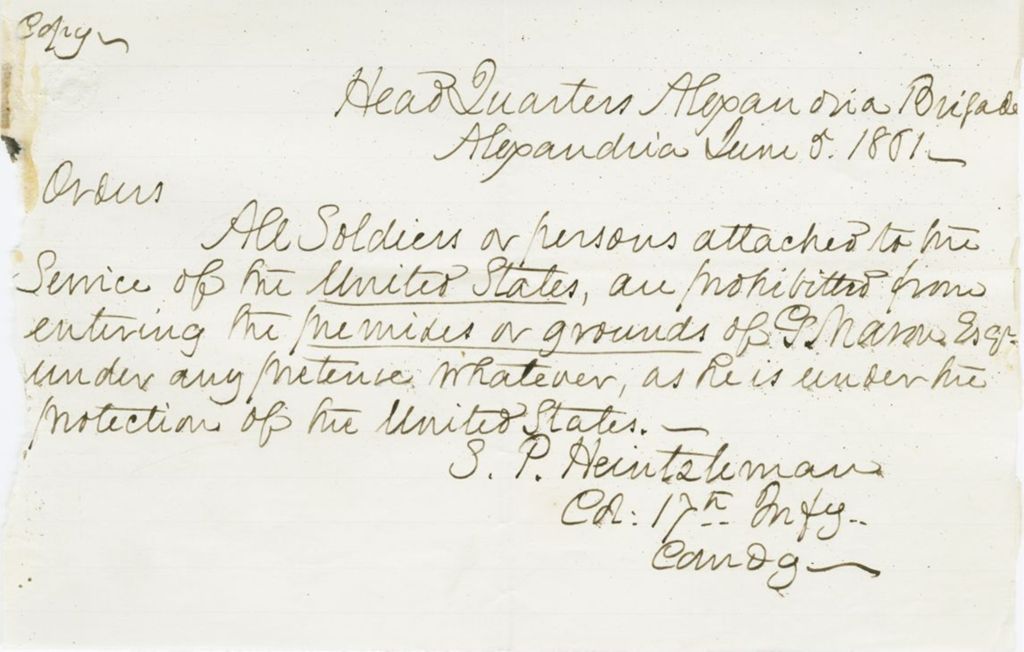 Copy
Head Quarters Alexandria Brigade
Alexandria June 5. 1861.
Orders
All Soldiers or persons attached to the
Service of the United States, are prohibitted from
entering the premises or grounds of G. Mason Esqr
under any pretense whatever, as he is under the
protection of the United States.
S. P. Heintzleman
Col: 17th Infy..
Comdg